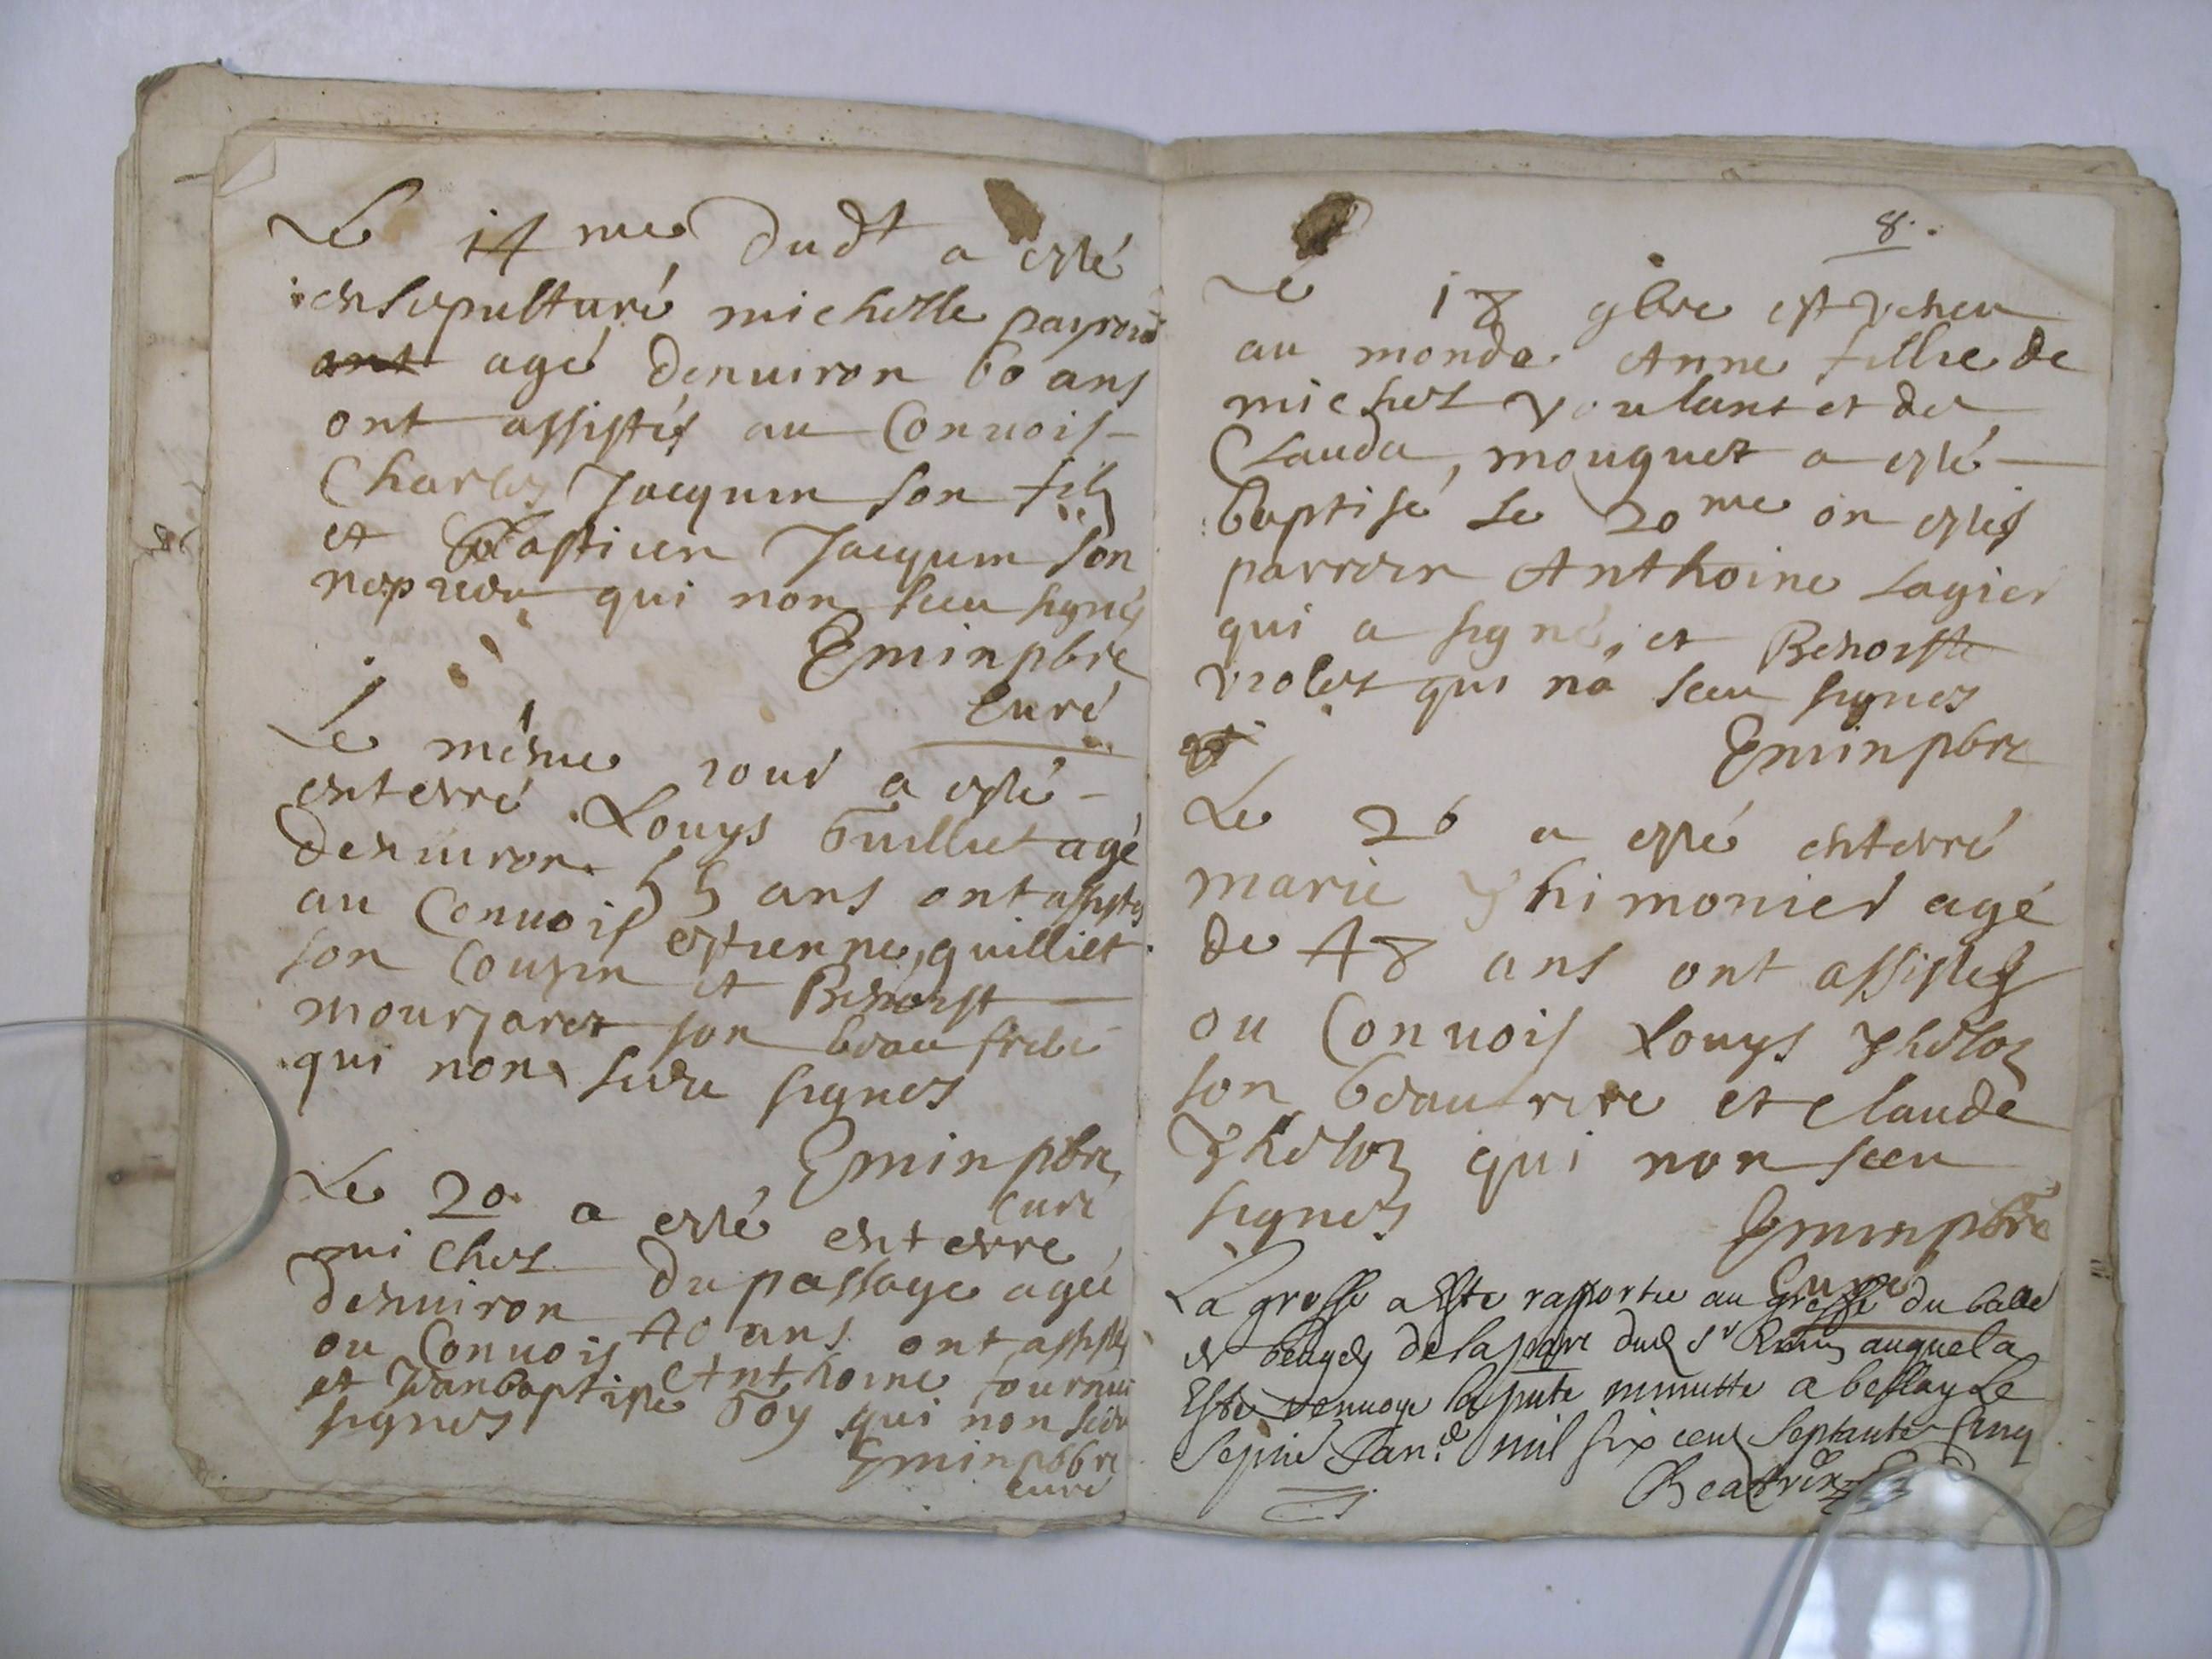 Le 14 me dudt a esté
ensepulturé michelle payron
ant agé denuiron 60 ans
ont assistés au Conuois
Charles Jacquin son fils
et Bastien Jacquin son
nepueu qui non sceu signés
Emin pbre
Curé
Le mesme iour a esté
enterré Louys Guilliet agé
denuiron 55 ans ont assistés
au Conuois estienne guilliet
son Cousin et Benoist
mourzaret son beau frere
qui non sceu signer
Emin pbre
Curé
Le 20 a esté enterre
michel du passage agée
denuiron 40 ans ont assistés
ou Conuois Anthoine fournie
et Jeanbaptiste Goy qui non sceu
signer
Emin pbbre
Curé
8.
Le 18 9bre est veneu
au monde Anne fillie de
michel voulant et de
Clauda mouquet a esté
baptisé le 20 me on estés
parroin Anthoine Lagier
qui a signé, et Benoiste
violet qui na sceu signer
Emin pbre
Le 26 a esté enterré
marie Thimonier agé
de 48 ans ont assistés
ou Conuois Louys
son beau frere et Claude
qui non sceu
signer
Emin pbre
Curé
La grosse a Esté rapportée au greffe du
de la part dud Sr auquel a
Esté renuoye la pnte minutte a bellay Le
Jan. mil six cens septante Cinq